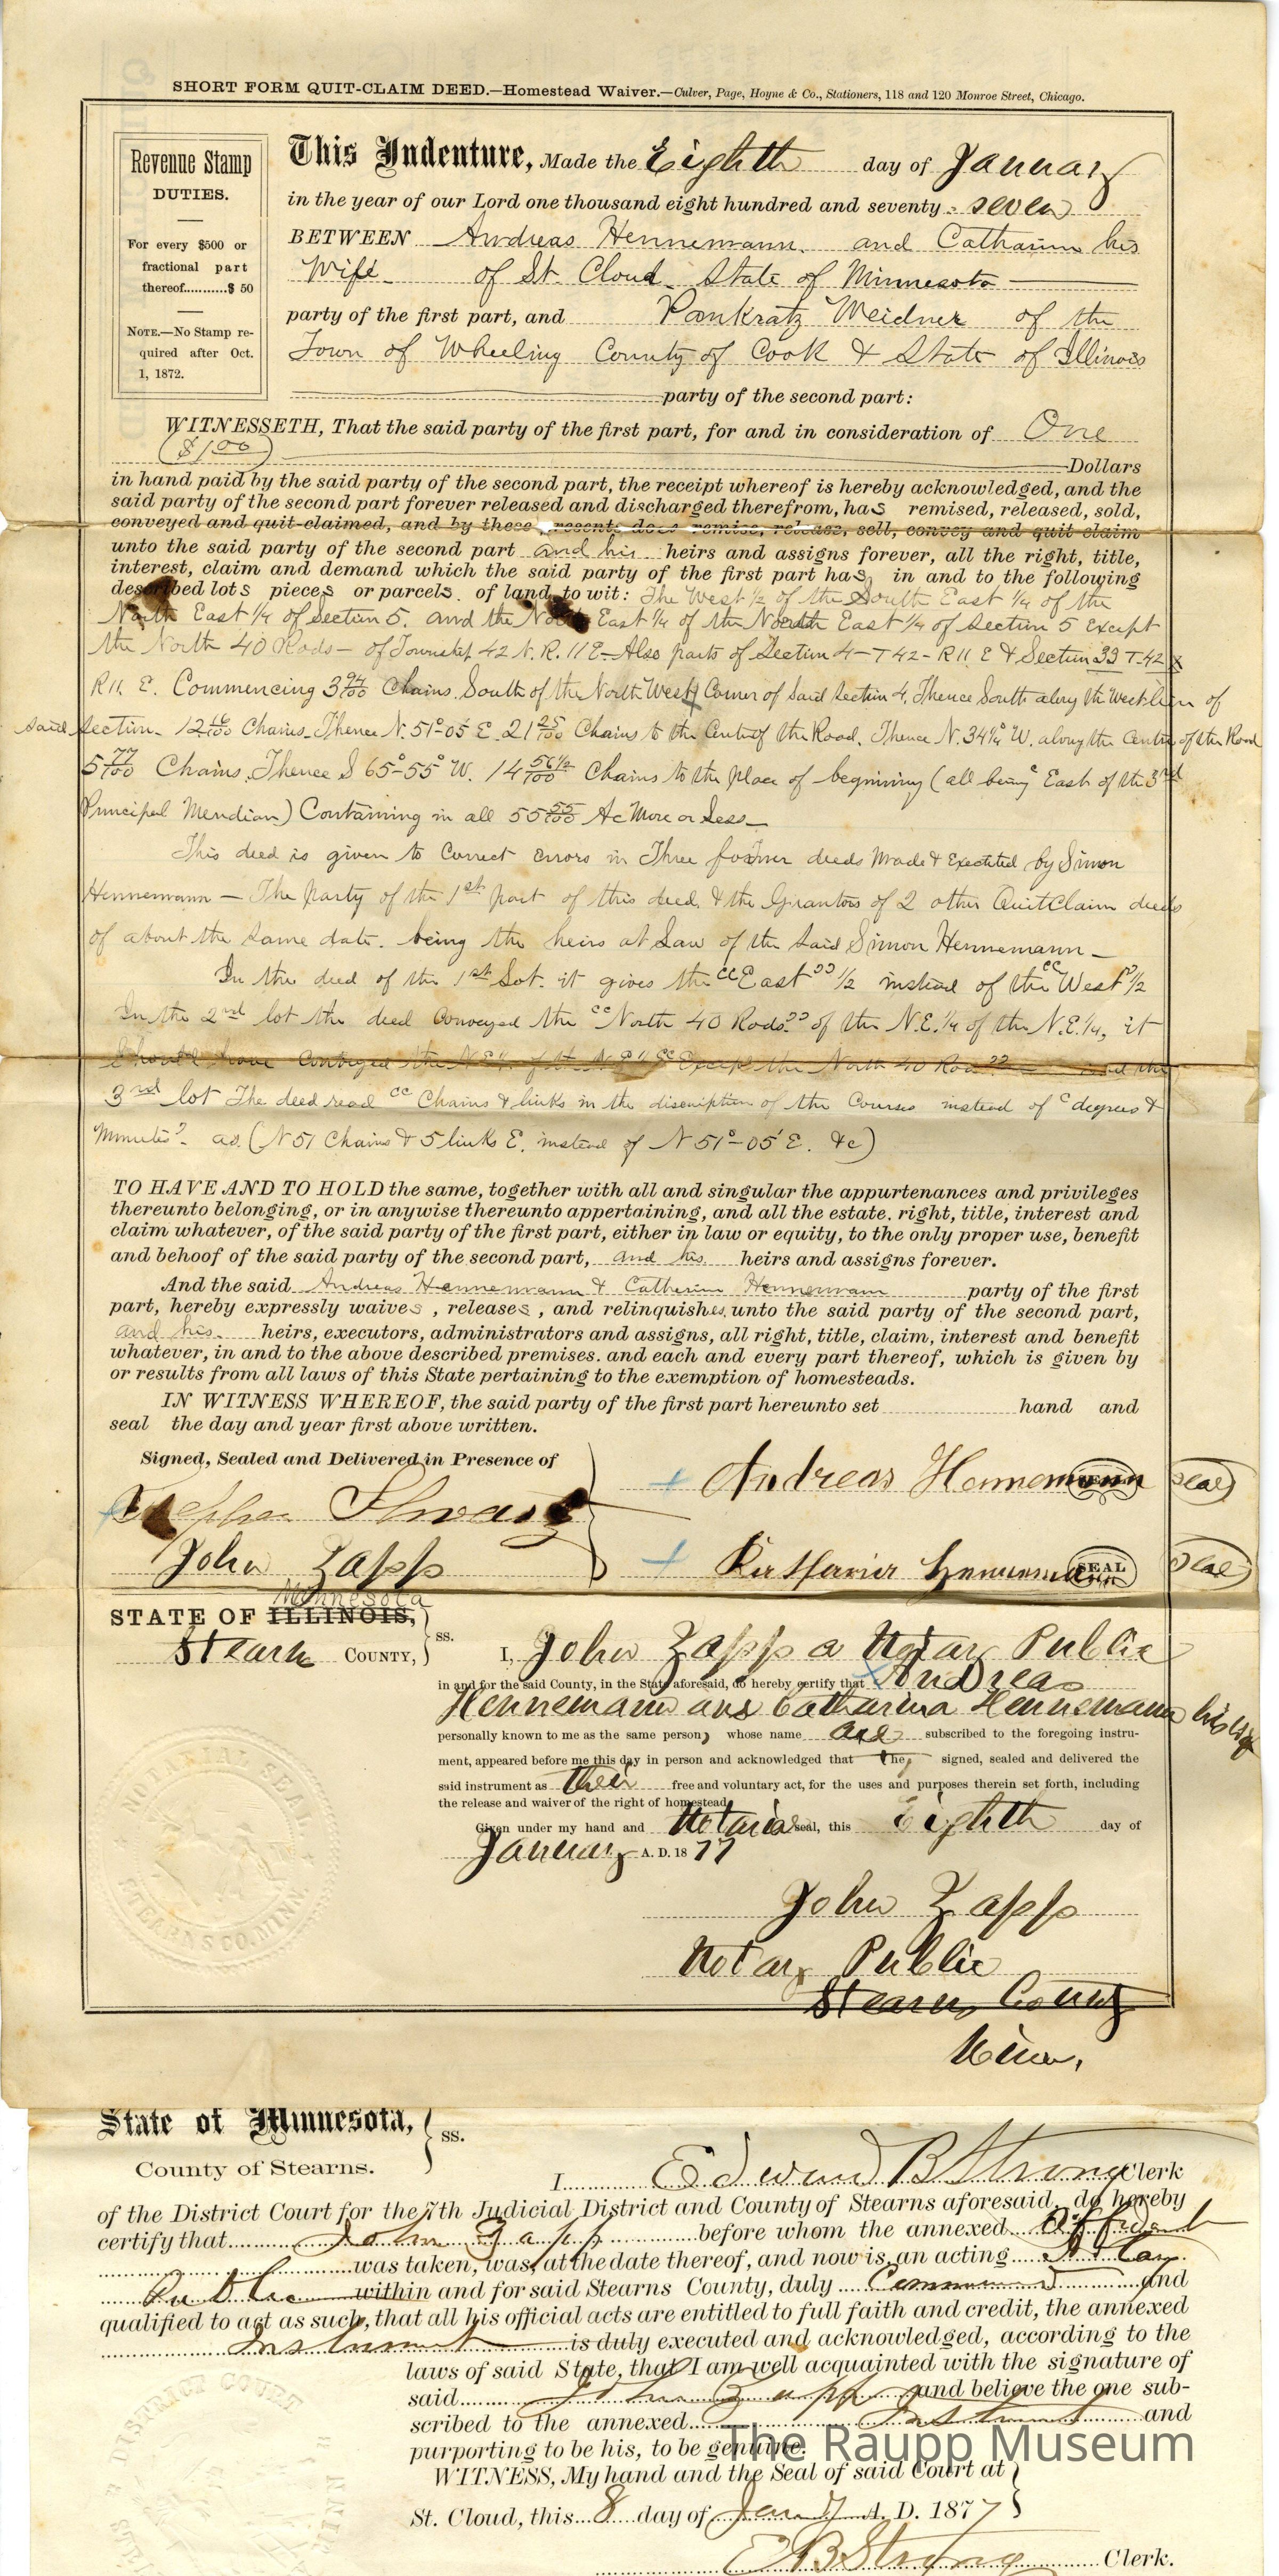 SHORT FORM QUIT-CLAIM DEED.—Homestead Waiver.—Culver, Page, Hoyne & Co., Stationers, 118 and 120 Monroe Street, Chicago.
Revenue Stamp
DUTIES.
For every $500 or
fractional part
thereof..........$ 50
NOTE.—No Stamp re-
quired after Oct.
1, 1872.
This Indenture, Made the Eighth day of January
in the year of our Lord one thousand eight hundred and seventy-seven
BETWEEN Andreas Hennemann. and Catharina his
Wife of St. Cloud. State of Minnesota
party of the first part, and Pankratz Weidner of the
Town of Wheeling County of Cook & State of Illinois
party of the second part:
WITNESSETH, That the said party of the first part, for and in consideration of One
($1.00) Dollars
in hand paid by the said party of the second part, the receipt whereof is hereby acknowledged, and the
said party of the second part forever released and discharged therefrom, has remised, released, sold,
conveyed and quit-claimed, and by these presents does remise, release, sell, convey and quit claim
unto the said party of the second part and his heirs and assigns forever, all the right, title,
interest, claim and demand which the said party of the first part has, in and to the following
described lots pieces or parcels. of land, to wit: The West ½ of the South East ¼ of the
North East ¼ of Section 5. and the North East ¼ of the North East ¼ of Section 5 Except
the North 40 Rods – of Township 42 N. R. 11 E – Also parts of Section 4 – T 42 – R 11 E & Section 33 T. 42
R 11. E. Commencing 3 94/100 Chains South of the North West Corner of Said Section 4, Thence South along the West line of
said Section. 12 16/100 Chains. Thence N. 51°-05' E. 21 25/100 Chains to the Center of the Road, Thence N. 34¼° W. along the Centre of the Road
5 77/100 Chains, Thence S 65°-55° W. 14 56½/100 Chains to the place of beginning (all being East of the 3rd
Principal Meridian) Containing in all 55 55/100 Ac More or Less –
This deed is given to Correct Errors in Three former deeds Made & Executed by Simon
Hennemann – The party of the 1st part of this deed & the Grantors of 2 other QuitClaim deeds
of about the same date. being the heirs at Law of the said Simon Hennemann –
In the deed of the 1st Lot. it gives the "East" ½ instead of the "West" ½
In the 2nd lot the deed Conveyed the "North 40 Rods" of the N.E.¼ of the N.E.¼, it
Should have Conveyed the N.E.¼ of the N.E.¼ "Except the North 40 Rods" the
3rd lot The deed read "Chains & links in the discription of the Courses instead of "degrees &
Minutes" – as (N 51 Chains & 5 links E. instead of N 51°-05' E. &c)
TO HAVE AND TO HOLD the same, together with all and singular the appurtenances and privileges
thereunto belonging, or in anywise thereunto appertaining, and all the estate. right, title, interest and
claim whatever, of the said party of the first part, either in law or equity, to the only proper use, benefit
and behoof of the said party of the second part, and his. heirs and assigns forever.
And the said Andreas Hennemann & Catherina Hennemann party of the first
part, hereby expressly waives, releases, and relinquishes unto the said party of the second part,
and his. heirs, executors, administrators and assigns, all right, title, claim, interest and benefit
whatever, in and to the above described premises. and each and every part thereof, which is given by
or results from all laws of this State pertaining to the exemption of homesteads.
IN WITNESS WHEREOF, the said party of the first part hereunto set hand and
seal the day and year first above written.
Signed, Sealed and Delivered in Presence of
Andreas Hennemann SEAL Seal
John Zapp
Katharina Hennemann SEAL Seal
STATE OF ILLINOIS, Minnesota
Stearns COUNTY, ss.
I, John Zapp a Notary Public
in and for the said County, in the State aforesaid, do hereby certify that Andreas
Hennemann and Catharina Hennemann his Wife
personally known to me as the same persons whose name are subscribed to the foregoing instru-
ment, appeared before me this day in person and acknowledged that they signed, sealed and delivered the
said instrument as their free and voluntary act, for the uses and purposes therein set forth, including
the release and waiver of the right of homestead.
Given under my hand and Notarial seal, this Eighth day of
January A. D. 18 77
John Zapp
Notary Public
Stearns County
Minn.
STEARNS CO. MINN.
State of Minnesota,
County of Stearns. ss.
I Edward B Strong Clerk
of the District Court for the 7th Judicial District and County of Stearns aforesaid, do hereby
certify that John Zapp before whom the annexed Affidavit
was taken, was, at the date thereof, and now is, an acting Notary
Public within and for said Stearns County, duly Commissioned and
qualified to act as such, that all his official acts are entitled to full faith and credit, the annexed
Instrument is duly executed and acknowledged, according to the
laws of said State, that I am well acquainted with the signature of
said John Zapp and believe the one sub-
scribed to the annexed Instrument and
purporting to be his, to be genuine.
The Raupp Museum
WITNESS, My hand and the Seal of said Court at
St. Cloud, this 8 day of Jany A. D. 1877
E B Strong Clerk.
DISTRICT COURT